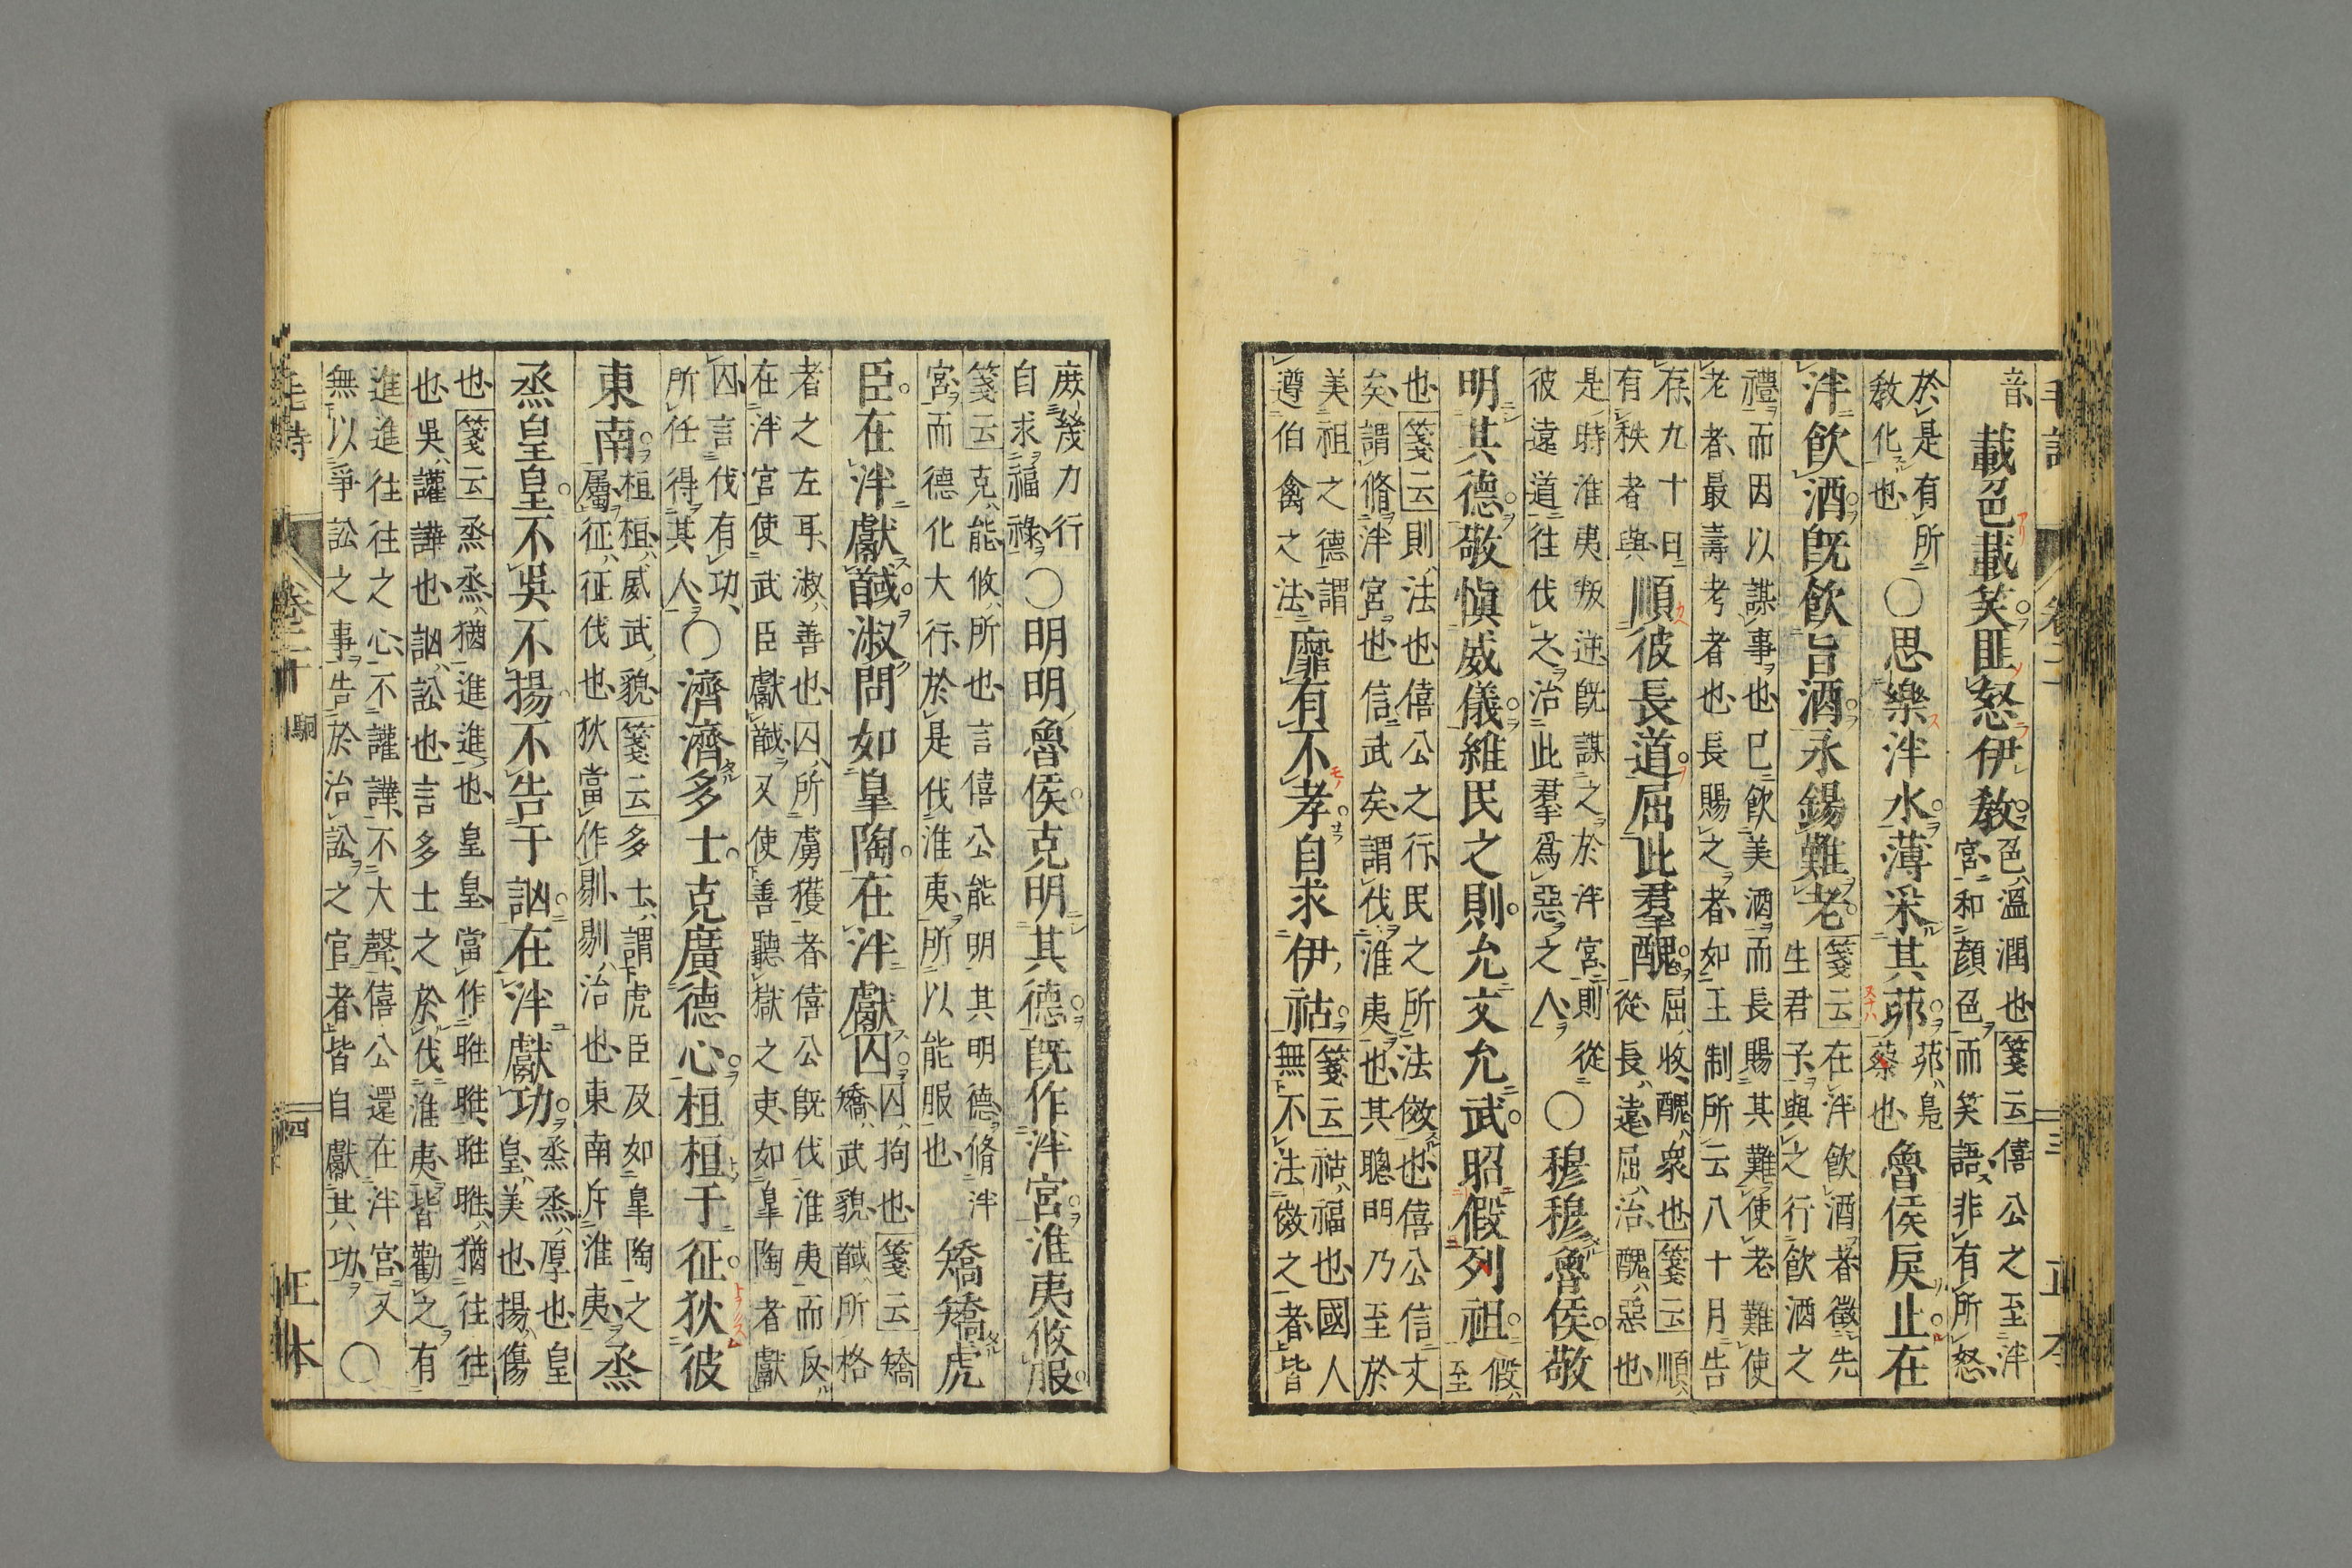 毛詩 卷二十 三 正本
音
載色載笑匪怒伊教
色溫潤也箋云僖公之至泮
宮和顏色而笑語非有所怒
於是有所
教化也
○思樂泮水薄采其茆
茆鳧
蔡也
魯侯戾止在
泮飲酒旣飲旨酒永錫難老
箋云在泮飲酒者徵先
生君子與之行飲酒之
禮而因以謀事也已飲美酒而長賜其難使老難使
老者最壽考者也長賜之者如王制所云八十月告
存九十日
有秩者與
順彼長道屈此羣醜
屈收醜衆也箋云順
從長遠屈治醜惡也
是時淮夷叛逆旣謀之於泮宮則從
彼遠道往伐之治此羣爲惡之人
○穆穆魯侯敬
明其德敬愼威儀維民之則允文允武昭假列祖
假
至
也箋云則法也僖公之行民之所法傚也僖公信文
矣謂脩泮宮也信武矣謂伐淮夷也其聰明乃至於
美祖之德謂
遵伯禽之法
靡有不孝自求伊祜
箋云祜福也國人
無不法傚之者皆
庶幾力行
自求福祿
○明明魯侯克明其德旣作泮宮淮夷攸服
箋云克能攸所也言僖公能明其明德脩泮
宮而德化大行於是伐淮夷所以能服也
矯矯虎
臣在泮獻馘淑問如皐陶在泮獻囚
囚拘也箋云矯
矯武貌馘所格
者之左耳淑善也囚所虜獲者僖公旣伐淮夷而反
在泮宮使武臣獻馘又使善聽獄之吏如皐陶者獻
囚言伐有功
所任得其人
○濟濟多士克廣德心桓桓于征狄彼
東南
桓桓威武貌箋云多士謂虎臣及如皐陶之
屬征征伐也狄當作剔剔治也東南斥淮夷
烝
烝皇皇不吳不揚不告于訩在泮獻功
烝烝厚也皇
皇美也揚傷
也箋云烝烝猶進進也皇皇當作暀暀暀暀猶往往
也吳讙譁也訩訟也言多士之於伐淮夷皆勸之有
進進往往之心不讙譁不大聲僖公還在泮宮又
無以爭訟之事告於治訟之官者皆自獻其功
○
毛詩 卷二十 駉 四 正本